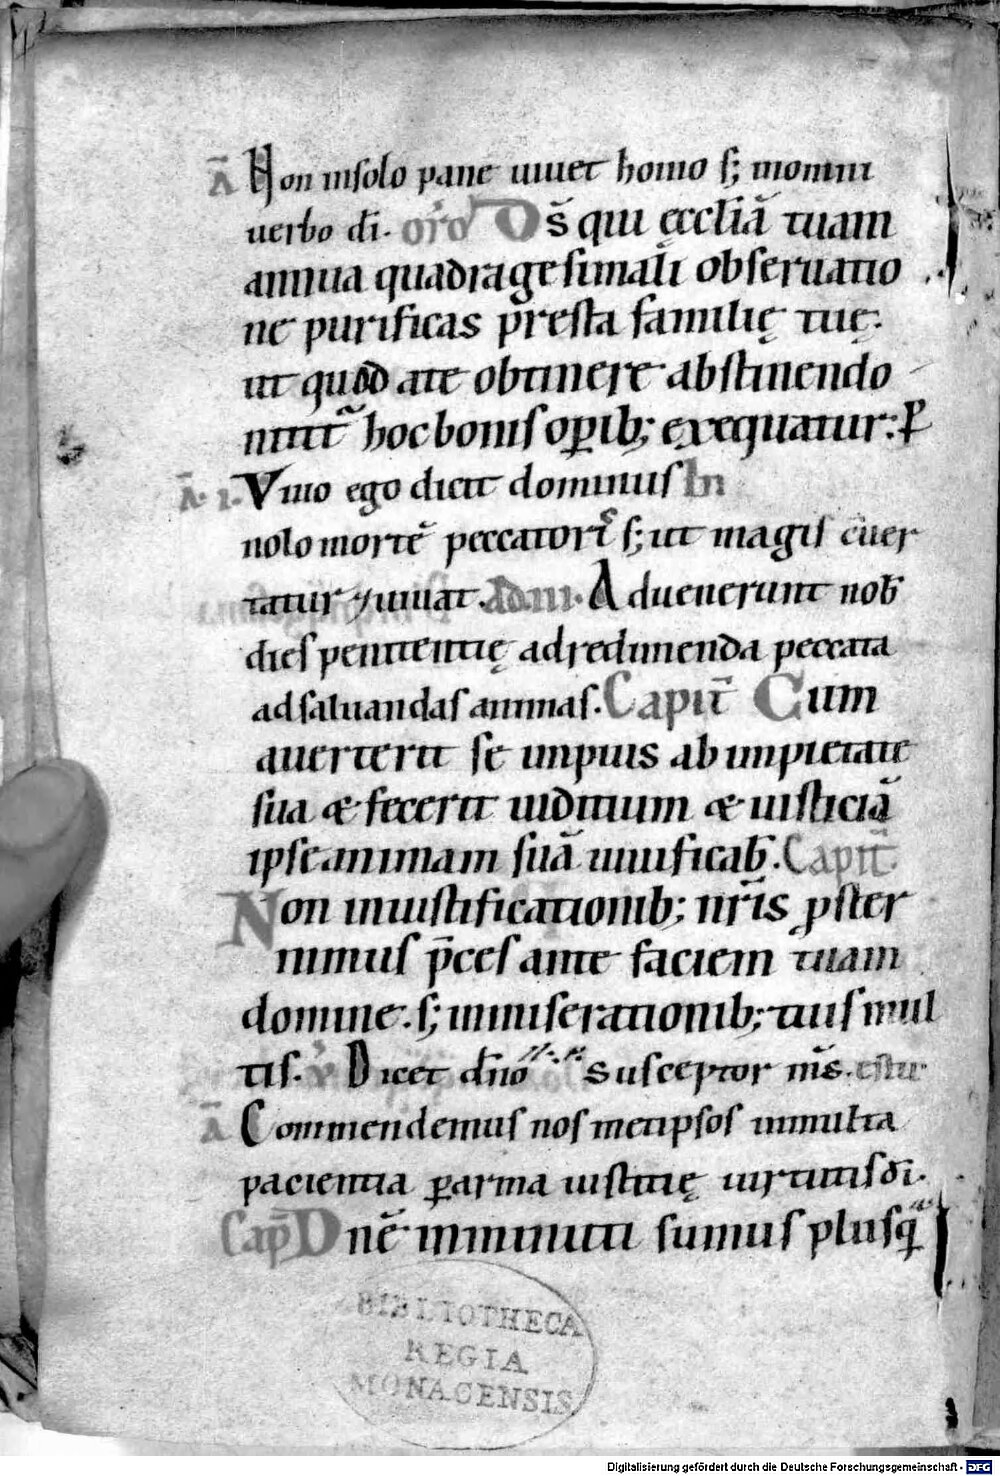 A̅ Non in solo pane uiuet homo s; in omni
uerbo di̅. or̅o D s̅ qui ęccl̅iā tuam
annua quadragesimali obseruatio
ne purificas presta familię tuę.
ut quod a te obtinere abstinendo
nitit̅ hoc bonis operib; exequatur: P̲
A̅. 1. Viuo ego dicit dominus In
nolo mortē peccatoris s; ut magis c̅uer
tatur ⁊ uiuat. Ad. III. Aduenerunt nob̅
dies penitentię ad redimenda peccata
ad saluandas animas. Capit̅ Cum
auerterit se impius ab impietate
sua & fecerit iuditium & iusticiā
ipse animam suā uiuificab̅. Capit̅.
Non in iustificationib; nr̅is ꝓster
nimus p̅ces ante faciem tuam
domine. s; in miserationib; tuis mul
tis. V̊ Dicet dn̅o Susceptor m̅s. es tu
A̅ Commendemus nosmetipsos in multa
pacientia ꝑ arma iustitię uirtutis di̅.
Cap̅ Dnē imminuti sumus plusq̄
BIBLIOTHECA
REGIA
MONACENSIS
Digitalisierung gefördert durch die Deutsche Forschungsgemeinschaft - DFG